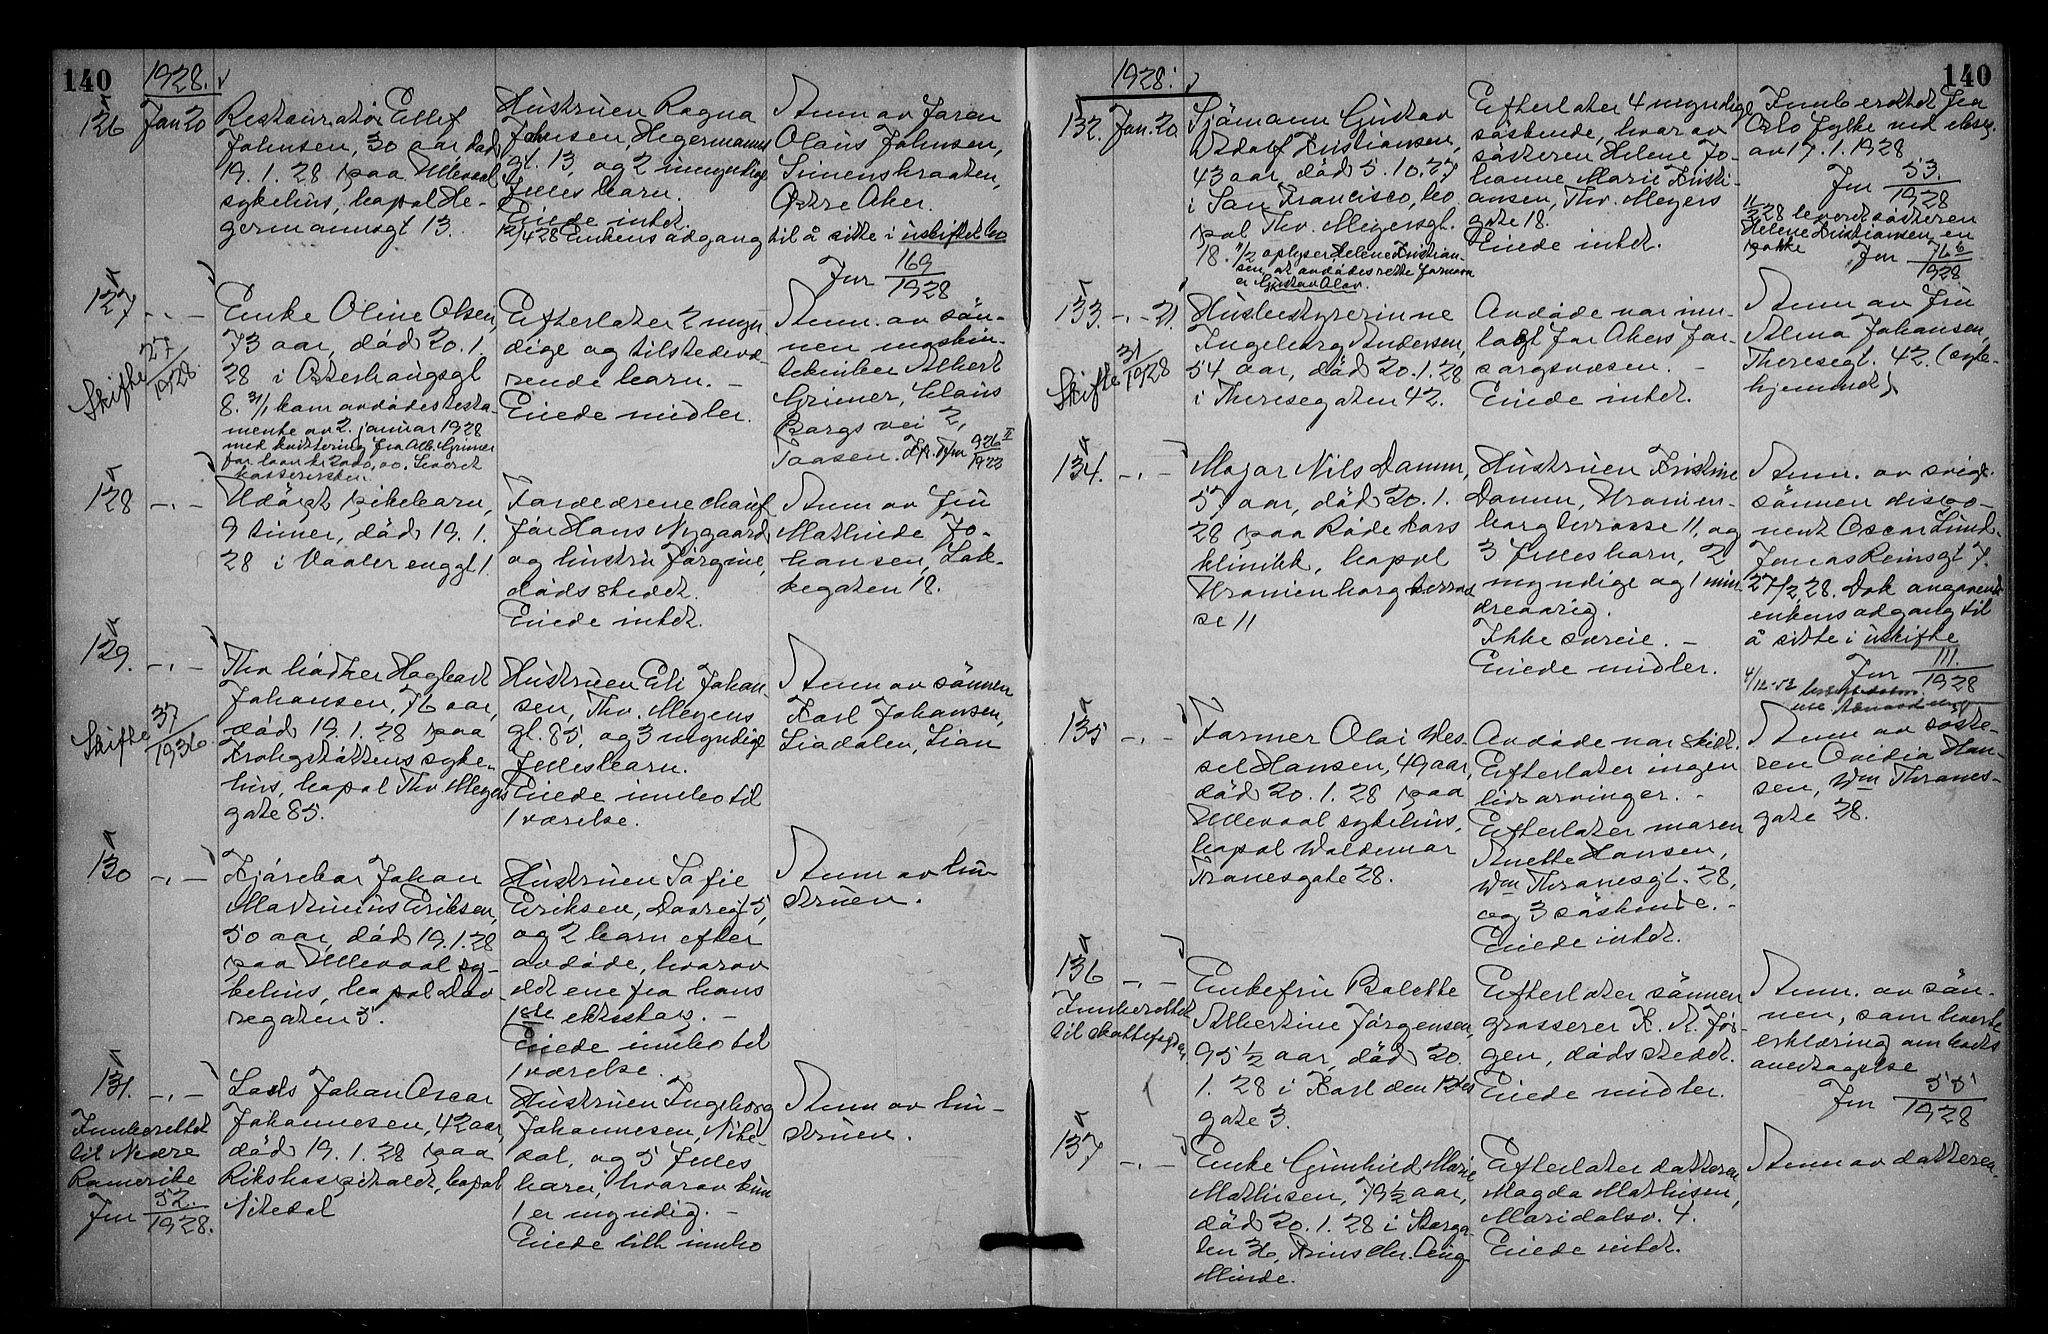 140
1928.
126 Jan 20
Restauratør Ellef
Johnsen, 30 aar, død
19.1.28 paa Ullevaal
sykehus, bopal He-
germannsgt 13.
Hustruen Ragna
Johnsen, Hegermanns
gt. 13, og 2 umyndige
fælles barn.
Eiede intet.
12/4 28 Enkens adgang
til å sitte i uskiftet bo
Jnr 169/1928
Anm. av faren
Olaus Johnsen,
Simensbraaten,
Østre Aker.
127 - " -
Skifte 27/1928.
Enke Oline Olsen,
73 aar, død 20.1.
28 i Osterhausgt
8. 31/1 kom avdødes testa-
mente av 2. januar 1928
med kvittering fra Alb. Grimer
for laan kr 2000,00. Leveret
kassereren
Efterlater 2 myn
dige og tilstedevæ
rende barn. -
Eiede midler.
Anm. av søn-
nen maskin-
tekniker Albert
Grimer, Claus
Borgs vei 2,
Taasen. Jnr 926 II/1922
128 - " -
Udøpt pikebarn,
9 timer, død 19.1.
28 i Vaalerenggt 1.
Forældrene chauf
før Hans Nygaard
og hustru Jørgine,
dødsstedet.
Eiede intet.
Anm av fru
Mathilde Jo-
hansen, Lak-
kegaten 18.
129. - " -
Skifte 37/1936.
Fhv bødker Hagbart
Johansen, 76 aar,
død 19.1.28 paa
Krohgstøttens syke-
hus, bopal Thv Meyers
gate 85.
Hustruen Eli Johan
sen, Thv. Meyers
gt. 85, og 3 myndige
fellesbarn.
Eiede innbo til
1 værelse.
Anm av sønnen
Karl Johansen,
Liadalen, Lian
130 - " -
Kjørekar Johan
Martinius Eriksen,
50 aar, død 19.1.28
paa Ullevaal sy-
kehus, bopal Dov
regaten 5.
Hustruen Sofie
Eriksen, Dovregt 5,
og 2 barn efter
avdøde, hvorav
det ene fra hans
1ste ektestap. -
Eiede innbo til
1 værelse.
Anm av hu-
struen.
131. - " -
Innberettet
til Nedre
Romerike
Jnr 52./1928.
Lods Johan Oscar
Johannesen, 42 aar,
død 19.1.28 paa
Rikshospitalet, bopal
Nitedal
Hustruen Ingeborg
Johannesen, Nite-
dal, og 5 felles
barn, hvorav kun
1 er myndig. -
Eiede litt innbo
Anm av hu-
struen.
140
1928.
132. Jan. 20
Sjømann Gustav
Adolf Kristiansen,
43 aar, død 5.10.27
i San Francisco, bo
pal Thv. Meyersgt.
18. 11/2 oplyser Helene Kristian-
sen, at avdødes rette fornavn
er Gustav Olav.
Efterlater 4 myndige
søskende, hvorav
søsteren Helene Jo-
hanne Marie Kristi-
ansen, Thv. Meyers
gate 18.
Eiede intet.
Innberettet fra
Oslo fylke ved eksp.
av 17.1.1928
Jnr 53./1928
11/2 28 leveret søsteren
Helene Kristiansen en
pakke Jnr 76 b/1928
133. - " - 21.
Skifte 31/1928
Husbestyrerinne
Ingeborg Andersen,
54 aar, død 20.1.28
i Theresegaten 42.
Avdøde var inn-
lagt for Akers for-
sorgsvæsen. -
Eiede intet.
Anm. av fru
Alma Johansen,
Theresegt. 42. (syke-
hjemmet)
134. - " -
Major Nils Damm,
57 aar, død 20.1.
28 paa Røde kors
klinikk, bopal
Uranienborg terras
se 11
Hustruen Kristine
Damm, Uranien-
borg terrasse 11, og
3 fellesbarn, 2
myndige og 1 min
dreaarig.
Ikke særeie. -
Eiede midler.
Anm. av svige-
sønnen dispo-
nent Oscar Lund.
Jonas Reinsgt 7.
27/2 28. Dok angaaende
enkens adgang til
å sitte i uskifte
Jnr 111./1928
4/12-52
135 - " -
Farmer Olai Wes-
sel Hansen, 49 aar,
død 20.1.28 paa
Ullevaal sykehus,
bopal Waldemar
Tranesgate 28.
Avdøde var skilt.
Efterlater ingen
livsarvinger. -
Efterlater moren
Anette Hansen,
Wm Thranesgt. 28,
og 3 søskende. -
Eiede intet.
Anm av søste-
ren Ovidia Han-
sen, Wm Thranes-
gate 28.
136 - " -
Innberettet
til skattefogden
Enkefru Bolette
Albertine Jørgensen,
95 1/2 aar, død 20.
1.28 i Karl den 12tes
gate 3.
Efterlater sønnen
grosserer K. A. Jør-
gen, dødsstedet.
Eiede midler.
Anm. av søn-
nen, som hverte
erklæring om boets
overtagelse
Jnr 55/1928
137 - " -
Enke Gunhild Marie
Mathisen, 79 1/2 aar,
død 20.1.28 i Storga
ten 36, Prins Chr. Aug
Minde.
Efterlater datteren
Magda Mathisen,
Maridalsv. 4.
Eiede intet.
Anm av datteren.